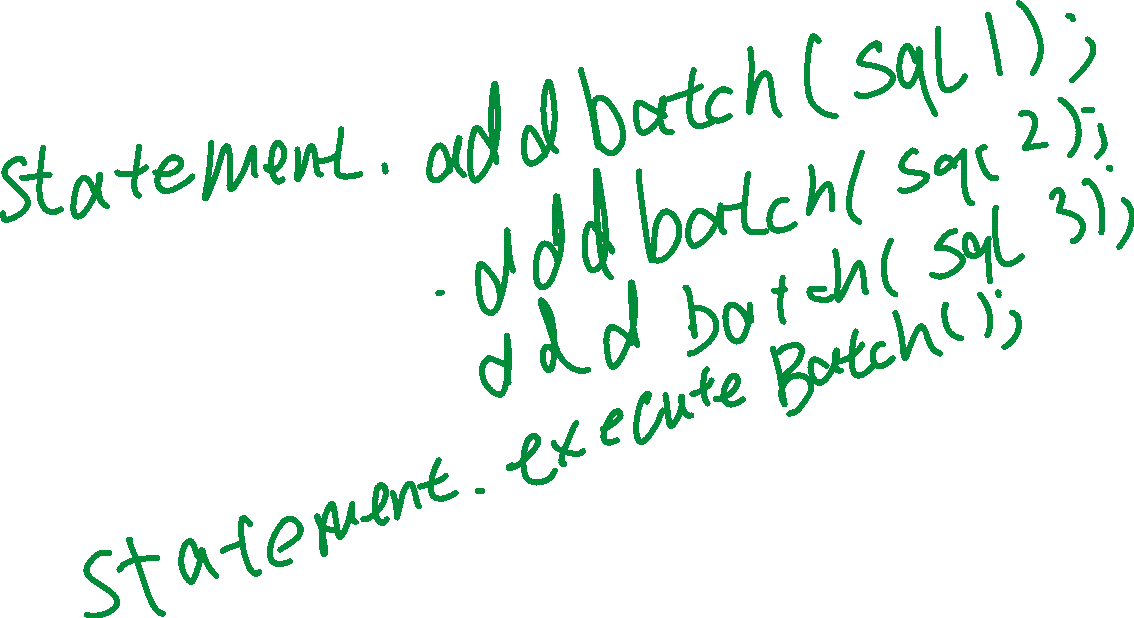 statement. addbatch(sql 1);
. addbatch(sql 2);
add batch(sql 3);
statement. executeBatch();